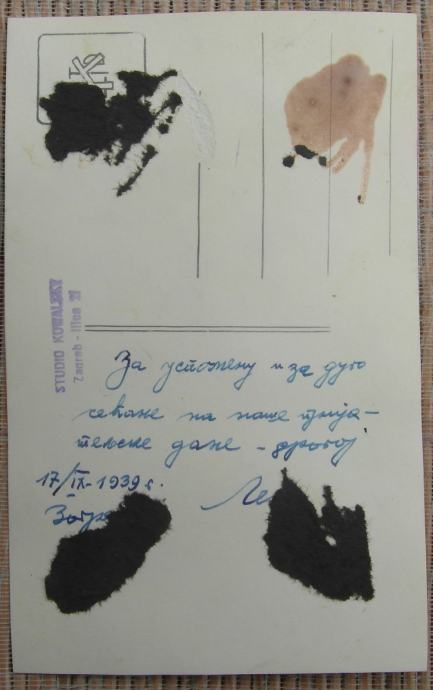 STUDIO KOWALSKY
Zagreb - Ilica
За успомену и за дуго
сећање на наше прија-
тељске дане - драгој
17/IX-1939 г.